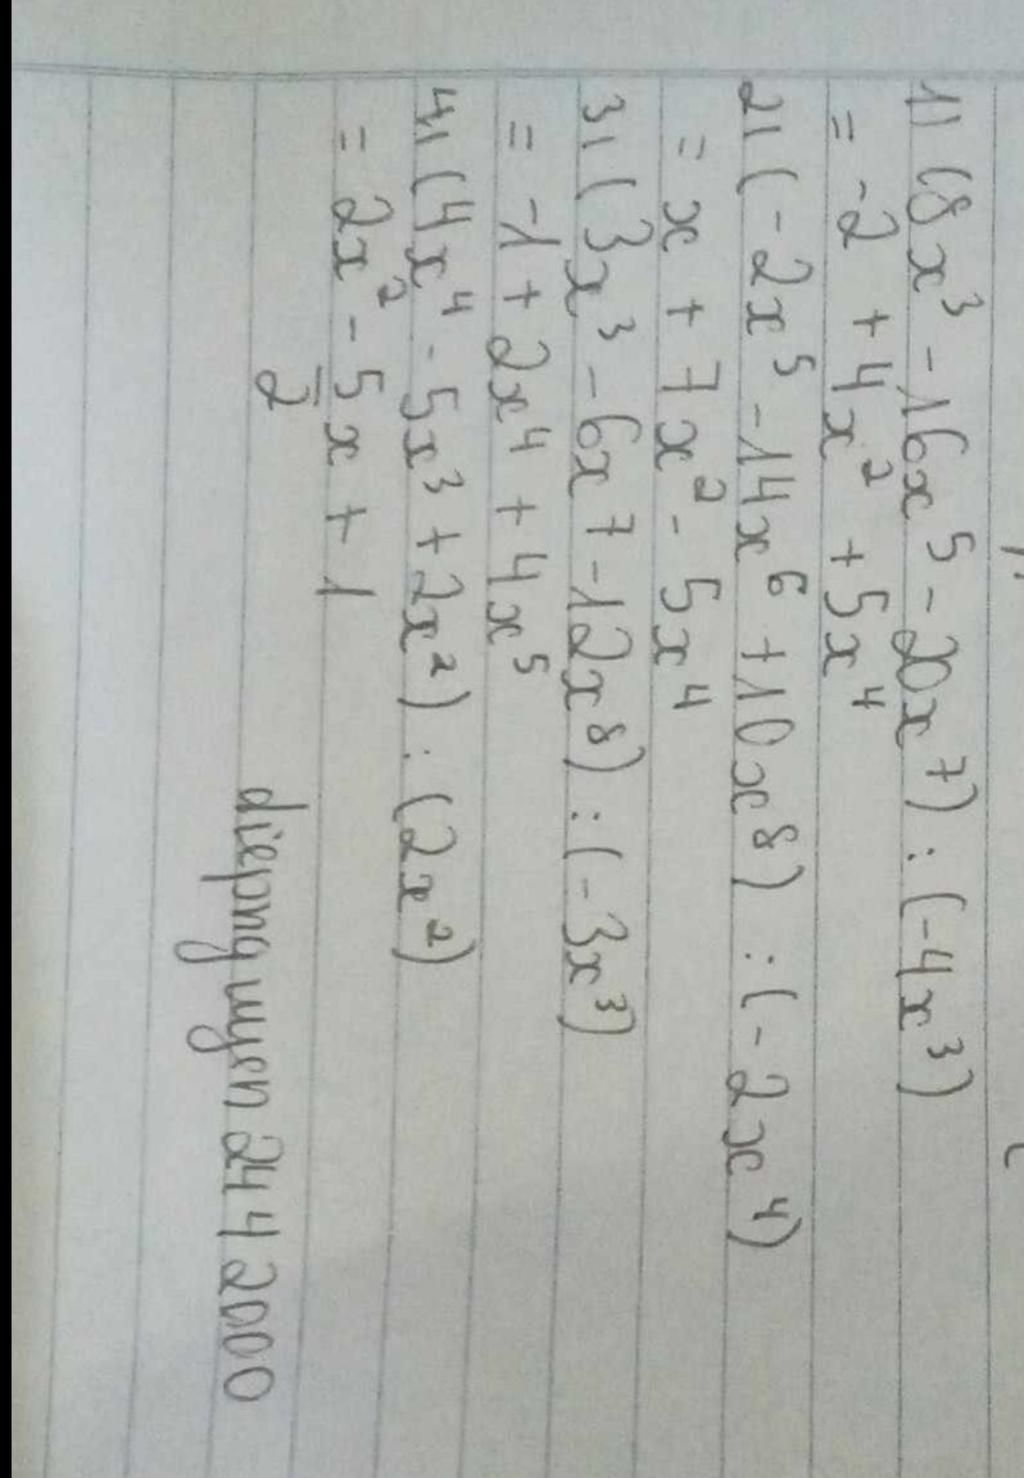 1) (8x³ - 16x⁵ - 20x⁷) : (-4x³)
= -2 + 4x² + 5x⁴
2) (-2x⁵ - 14x⁶ + 10x⁸) : (-2x⁴)
= x + 7x² - 5x⁴
3) (3x³ - 6x⁷ - 12x⁸) : (-3x³)
= -1 + 2x⁴ + 4x⁵
4) (4x⁴ - 5x³ + 2x²) : (2x²)
= 2x² - 5/2 x + 1
diepnguyen2442000